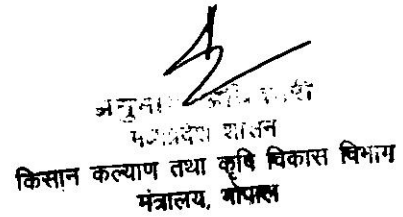 शासन
किसान कल्याण तथा कृषि विकास विभाग
मंत्रालय, भोपाल